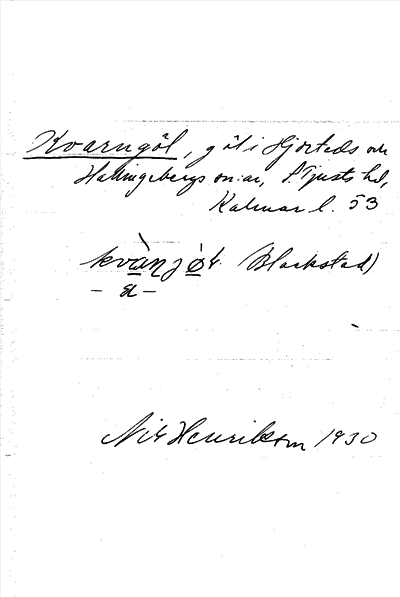 Kvarngöl, göl i Hjorteds och
Hallingebergs sn:ar, S. Tjusts hd,
Kalmar l. 53
kvànjǿl. Blackstad)
– a –
Nils Henriksson 1930